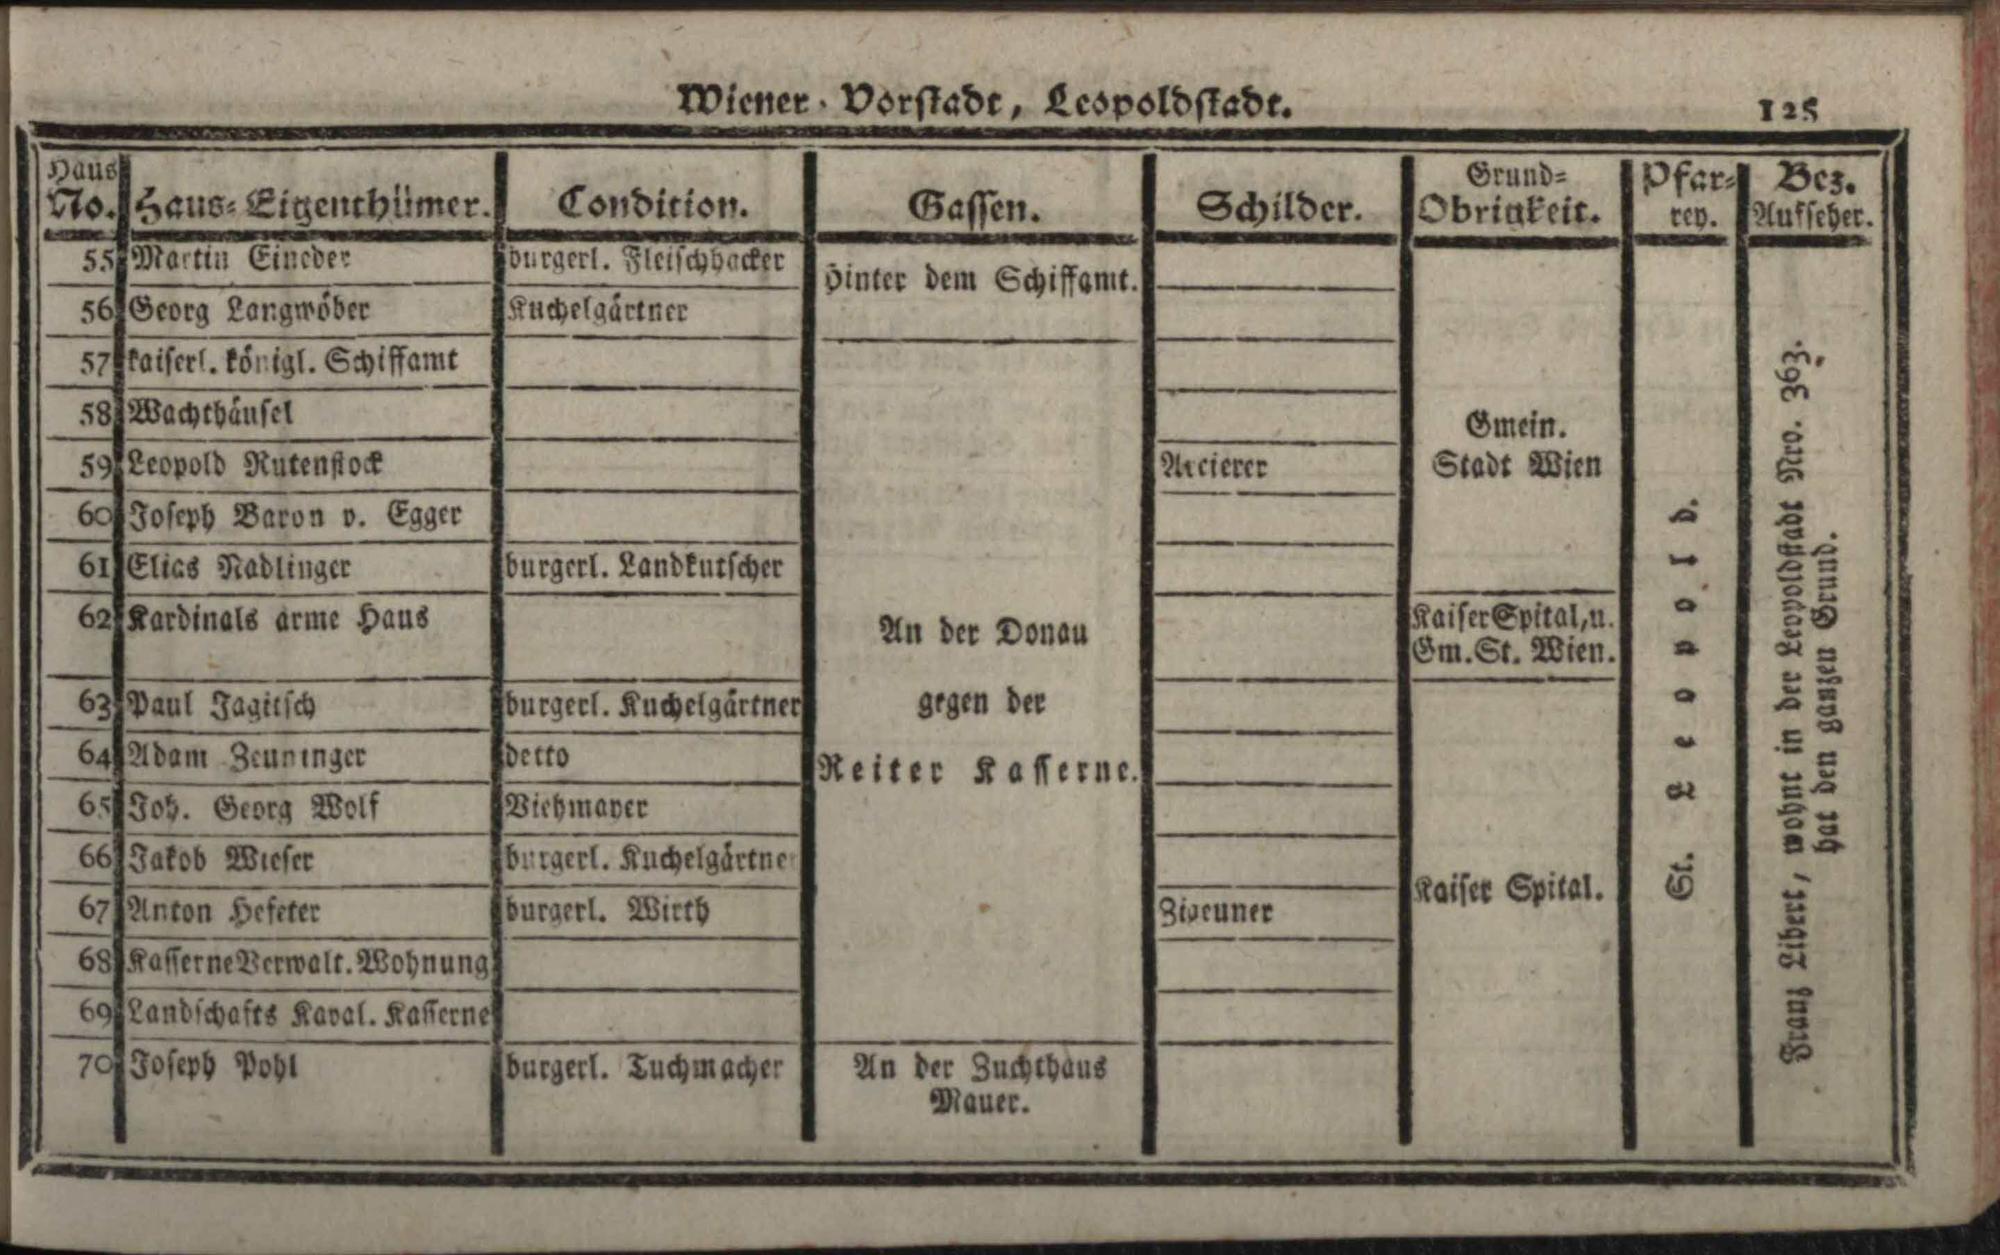 Wiener-Vorstadt, Leopoldstadt. 125
Haus No. Haus-Eigenthümer. Condition. Gassen. Schilder. Grund-Obrigkeit. Pfarrey. Bez. Aufseher.
55 Martin Eineder burgerl. Fleischhacker
Hinter dem Schiffamt.
56 Georg Langwöber Kuchelgärtner
57 kaiserl. königl. Schiffamt
58 Wachthäusel
59 Leopold Rutenstock Arcierer
60 Joseph Baron v. Egger
61 Elias Nadlinger burgerl. Landkutscher
62 Kardinals arme Haus
63 Paul Jagitsch burgerl. Kuchelgärtner
64 Adam Zeuninger detto
65 Joh. Georg Wolf Viehmayer
66 Jakob Wieser burgerl. Kuchelgärtner
67 Anton Hefeter burgerl. Wirth Zigeuner
68 Kasserne Verwalt. Wohnung
69 Landschafts Kaval. Kasserne
70 Joseph Pohl burgerl. Tuchmacher
An der Donau
gegen der
Reiter Kasserne.
An der Zuchthaus
Mauer.
Gmein.
Stadt Wien
Kaiser Spital, u.
Gm. St. Wien.
Kaiser Spital.
St. Leopold.
Franz Libert, wohnt in der Leopoldstadt Nro. 363.
hat den ganzen Grund.